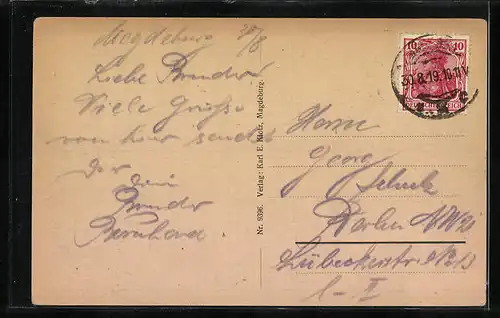 Magdeburg 30/8
Liebe Bruder
Viele Grüsse
von hier sendet
Dir
Dein
Bruder
Bernhard.
Nr. 9396. Verlag: Karl E. Klotz, Magdeburg.
10 10
30.8.19.10-11V.
DEUTSCHES REICH
Herrn
Georg
Berlin NW
Lübeckerstr